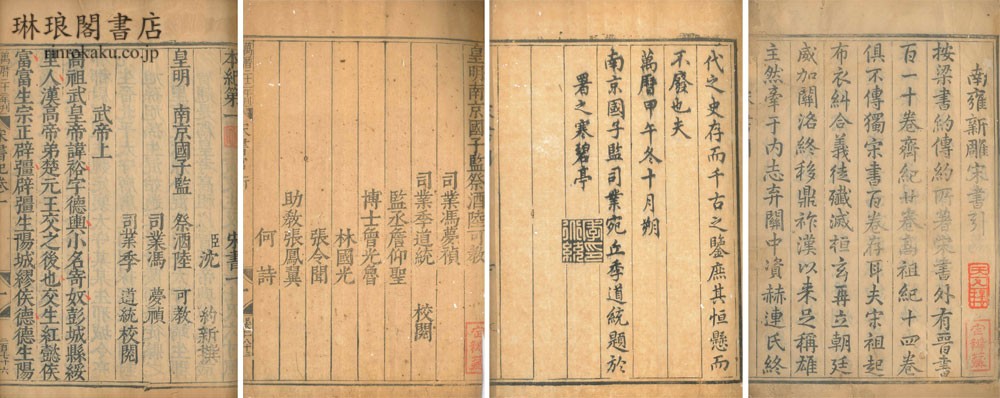 琳琅閣書店
rinrokaku.co.jp
南雍新雕宋書引
按梁書約傳約所著宋書外有晉書
百一十卷齊紀廿卷高祖紀十四卷
俱不傳獨宋書百卷存耳夫宋祖起
布衣糾合義徒殲滅桓玄再立朝廷
威加關洛終移鼎祚漢以来足稱雄
主然牽于内志弃關中資赫連氏終
代之史存而千古之鑒庶其恒懸而
不廢也夫
萬曆甲午冬十月朔
南京國子監司業宛丘季道統題於
署之寒碧亭
皇明南京國子監祭酒陸可教
司業馮夢禎
司業季道統 校閱
監丞詹仰聖
博士曾光魯
林國光
張令聞
助教張鳳翼
何詩
本紀第一 宋書一
臣沈 約新撰
皇明 南京國子監 祭酒陸 可教
司業馮 夢禎
司業季 道統校閱
武帝上
高祖武皇帝諱裕字德輿小名寄奴彭城縣綏
里人漢高帝弟楚元王交之後也交生紅懿侯
富富生宗正辟彊辟彊生陽城繆侯德德生陽